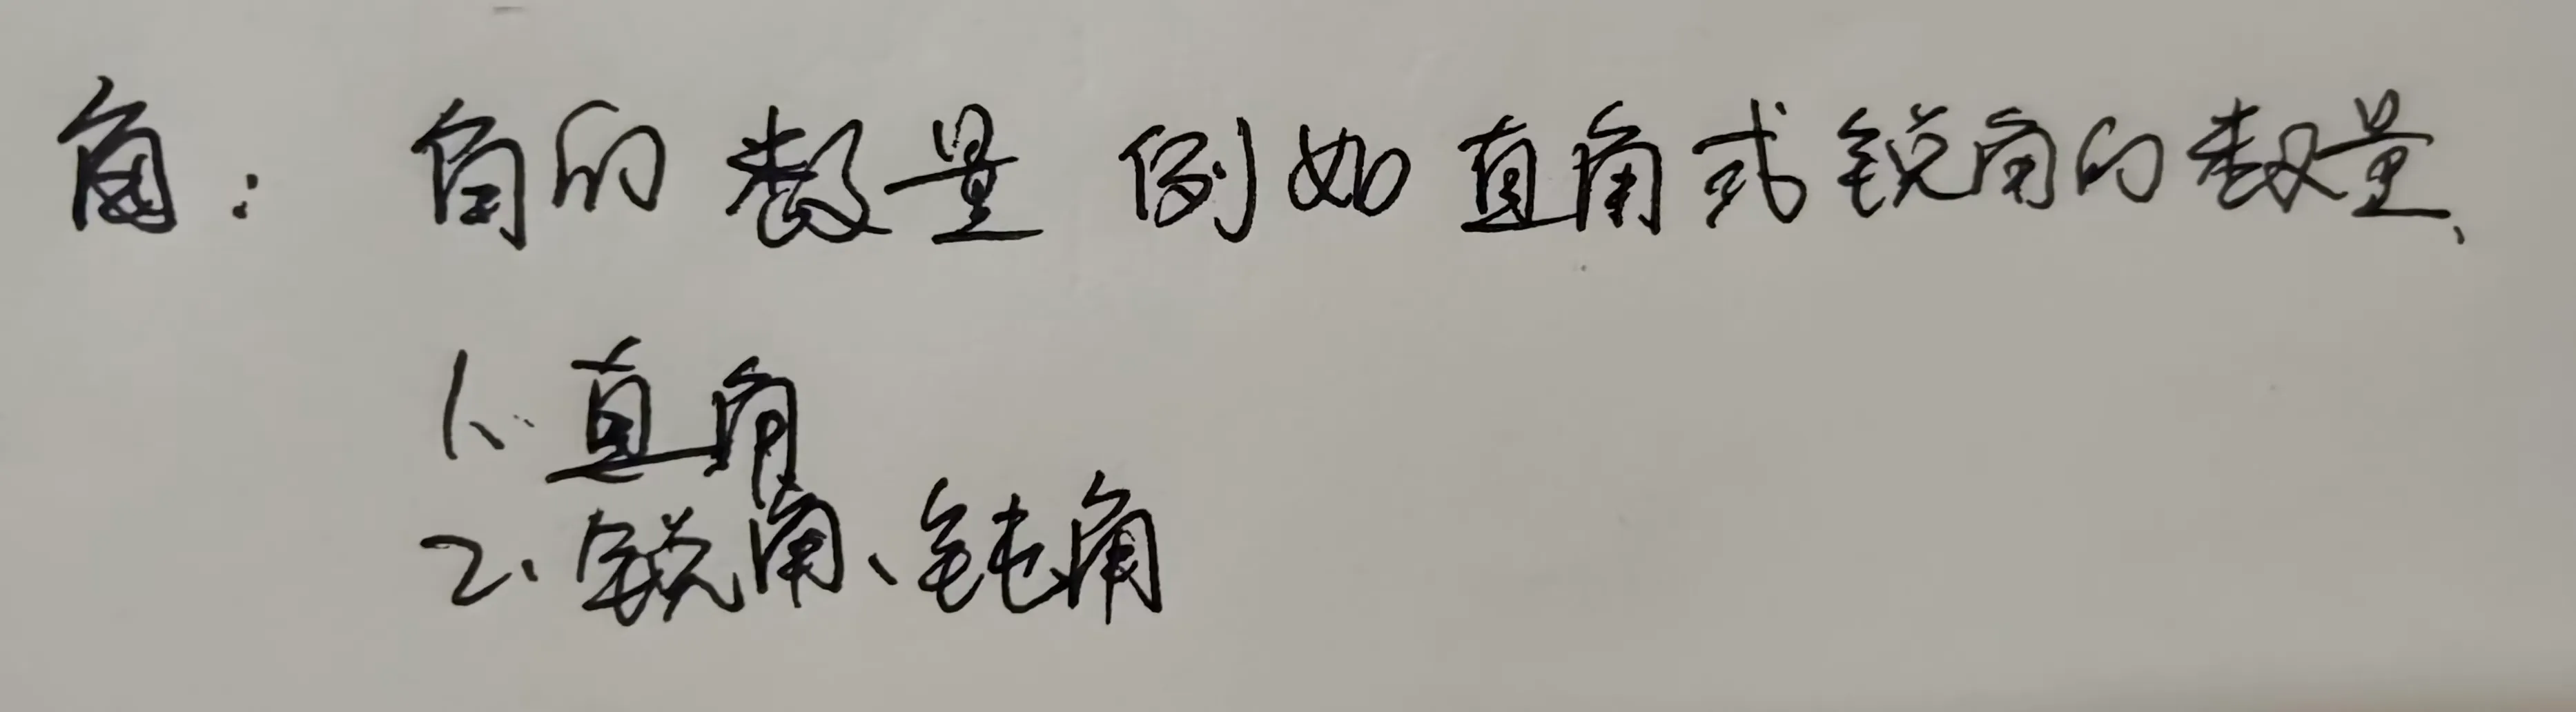 角：角的数量 例如直角或锐角的数量、
1、直角
2、锐角、钝角